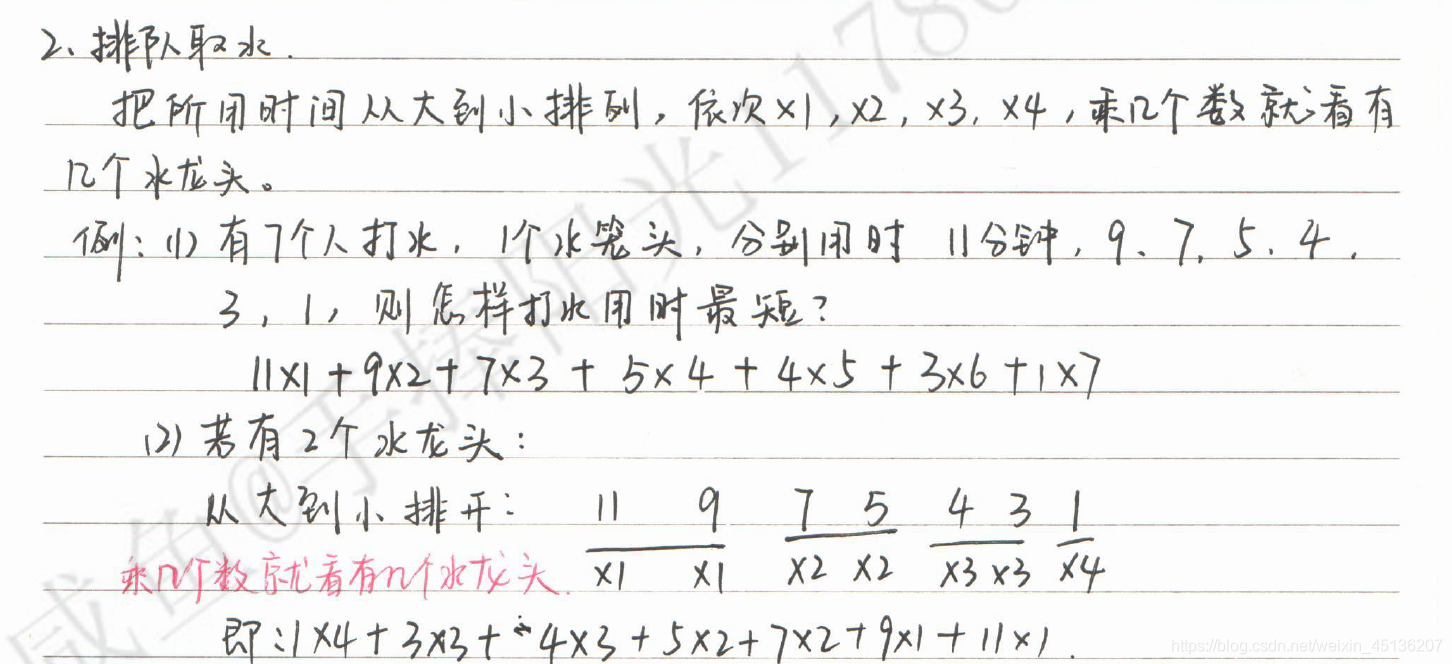 2、排队取水.
把所用时间从大到小排列，依次×1，×2，×3，×4，乘几个数就看有
几个水龙头。
例：(1) 有7个人打水，1个水笼头，分别用时 11分钟，9、7、5、4、
3，1，则怎样打水用时最短？
11×1+9×2+7×3+5×4+4×5+3×6+1×7
(2) 若有2个水龙头：
从大到小排开： 11 9 7 5 4 3 1
乘几个数就看有几个水龙头. ×1 ×1 ×2 ×2 ×3 ×3 ×4
即：1×4+3×3+4×3+5×2+7×2+9×1+11×1.
咸鱼@手捧阳光1178
https://blog.csdn.net/weixin_45136207